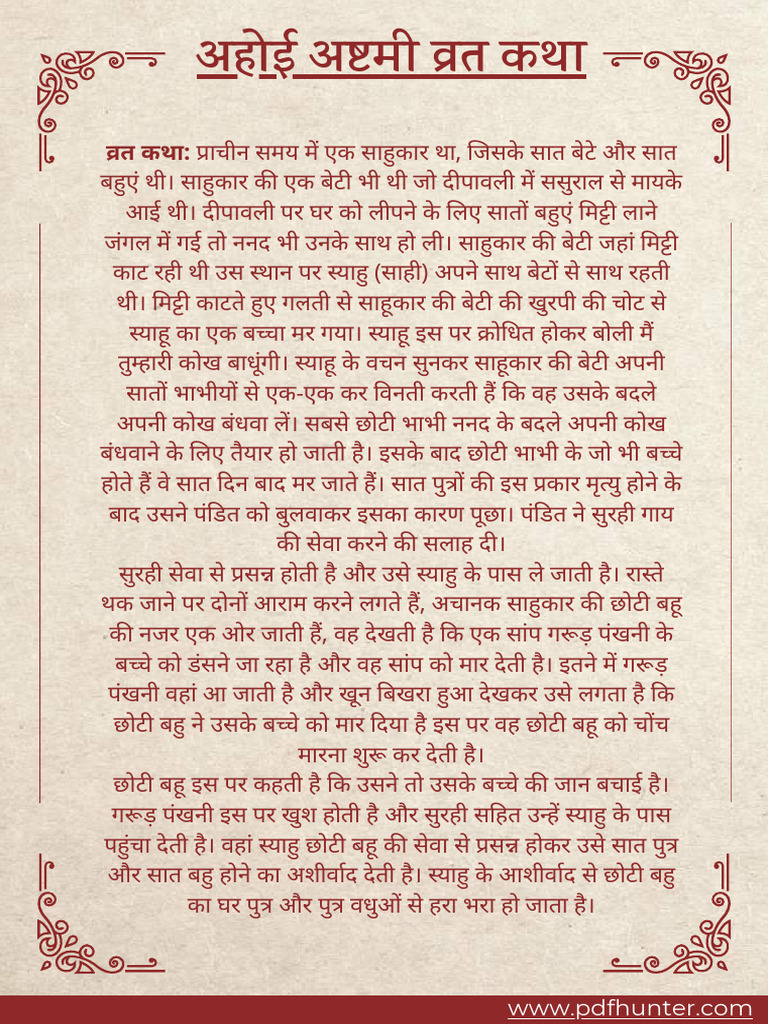 अहोई अष्टमी व्रत कथा
व्रत कथा: प्राचीन समय में एक साहुकार था, जिसके सात बेटे और सात
बहुएं थी। साहुकार की एक बेटी भी थी जो दीपावली में ससुराल से मायके
आई थी। दीपावली पर घर को लीपने के लिए सातों बहुएं मिट्टी लाने
जंगल में गई तो ननद भी उनके साथ हो ली। साहुकार की बेटी जहां मिट्टी
काट रही थी उस स्थान पर स्याहु (साही) अपने साथ बेटों से साथ रहती
थी। मिट्टी काटते हुए गलती से साहूकार की बेटी की खुरपी की चोट से
स्याहू का एक बच्चा मर गया। स्याहू इस पर क्रोधित होकर बोली मैं
तुम्हारी कोख बाधूंगी। स्याहू के वचन सुनकर साहूकार की बेटी अपनी
सातों भाभीयों से एक-एक कर विनती करती हैं कि वह उसके बदले
अपनी कोख बंधवा लें। सबसे छोटी भाभी ननद के बदले अपनी कोख
बंधवाने के लिए तैयार हो जाती है। इसके बाद छोटी भाभी के जो भी बच्चे
होते हैं वे सात दिन बाद मर जाते हैं। सात पुत्रों की इस प्रकार मृत्यु होने के
बाद उसने पंडित को बुलवाकर इसका कारण पूछा। पंडित ने सुरही गाय
की सेवा करने की सलाह दी।
सुरही सेवा से प्रसन्न होती है और उसे स्याहु के पास ले जाती है। रास्ते
थक जाने पर दोनों आराम करने लगते हैं, अचानक साहुकार की छोटी बहू
की नजर एक ओर जाती हैं, वह देखती है कि एक सांप गरूड़ पंखनी के
बच्चे को डंसने जा रहा है और वह सांप को मार देती है। इतने में गरूड़
पंखनी वहां आ जाती है और खून बिखरा हुआ देखकर उसे लगता है कि
छोटी बहु ने उसके बच्चे को मार दिया है इस पर वह छोटी बहू को चोंच
मारना शुरू कर देती है।
छोटी बहू इस पर कहती है कि उसने तो उसके बच्चे की जान बचाई है।
गरूड़ पंखनी इस पर खुश होती है और सुरही सहित उन्हें स्याहु के पास
पहुंचा देती है। वहां स्याहु छोटी बहू की सेवा से प्रसन्न होकर उसे सात पुत्र
और सात बहु होने का अशीर्वाद देती है। स्याहु के आशीर्वाद से छोटी बहु
का घर पुत्र और पुत्र वधुओं से हरा भरा हो जाता है।
www.pdfhunter.com